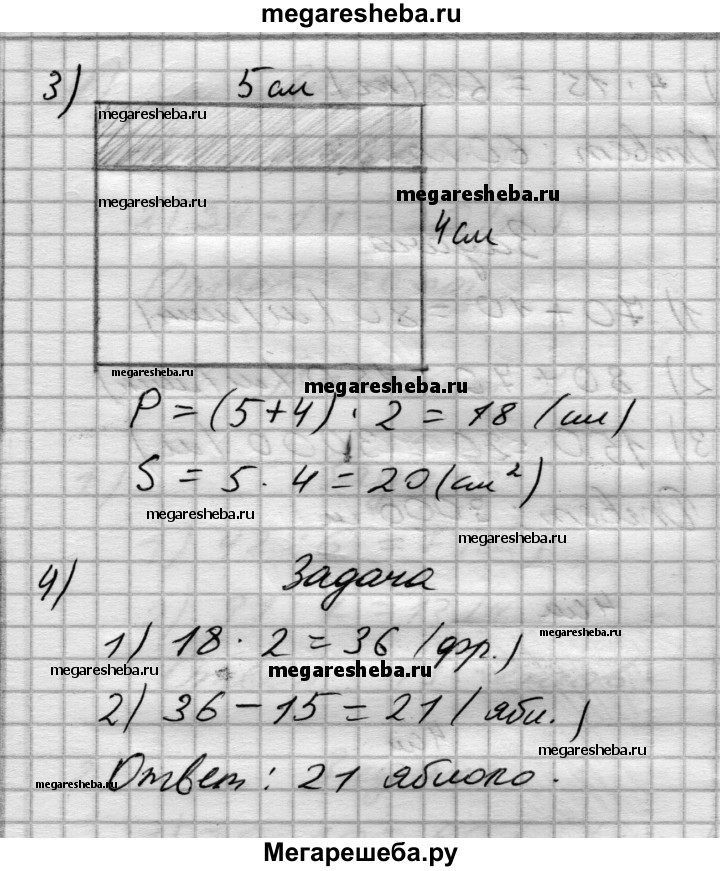 megaresheba.ru
3) 5 см
megaresheba.ru
megaresheba.ru
megaresheba.ru
4 см
megaresheba.ru
megaresheba.ru
P = (5+4) · 2 = 18 (см)
S = 5 · 4 = 20 (см²)
megaresheba.ru
megaresheba.ru
4) Задача
1) 18 · 2 = 36 (фр.)
megaresheba.ru
megaresheba.ru
megaresheba.ru
2) 36 - 15 = 21 (ябл.)
megaresheba.ru
megaresheba.ru
Ответ: 21 яблоко.
Мегарешеба.ру